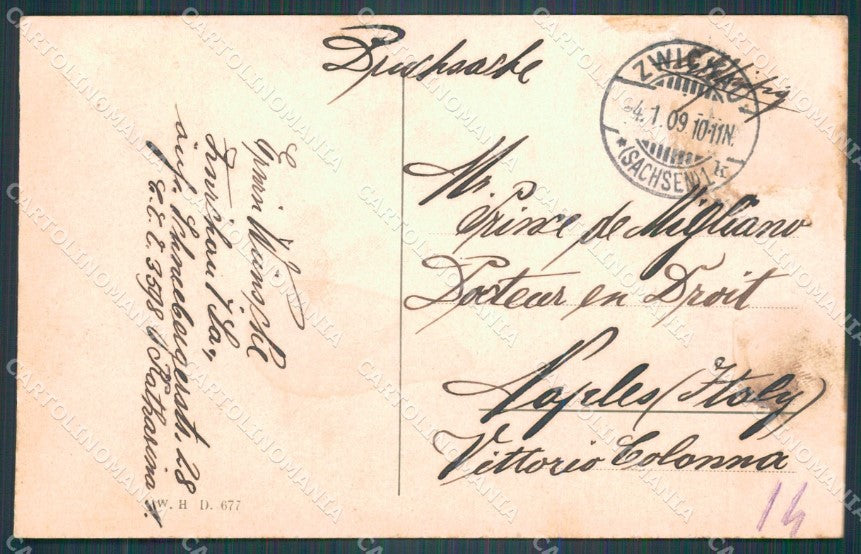 Drucksache
ZWICKAU
4.1.09 10-11N.
*(SACHSEN)1 k
Mr.
Prince de Migliano
Docteur en Droit
Naples (Italy)
Vittorio Colonna
14
Erwin Wünsche
Zwickau i/Sa.,
äuß. Schneebergerstr. 28
C.C.C. 3598 Katharina
W. H D. 677
CARTOLINOMANIA